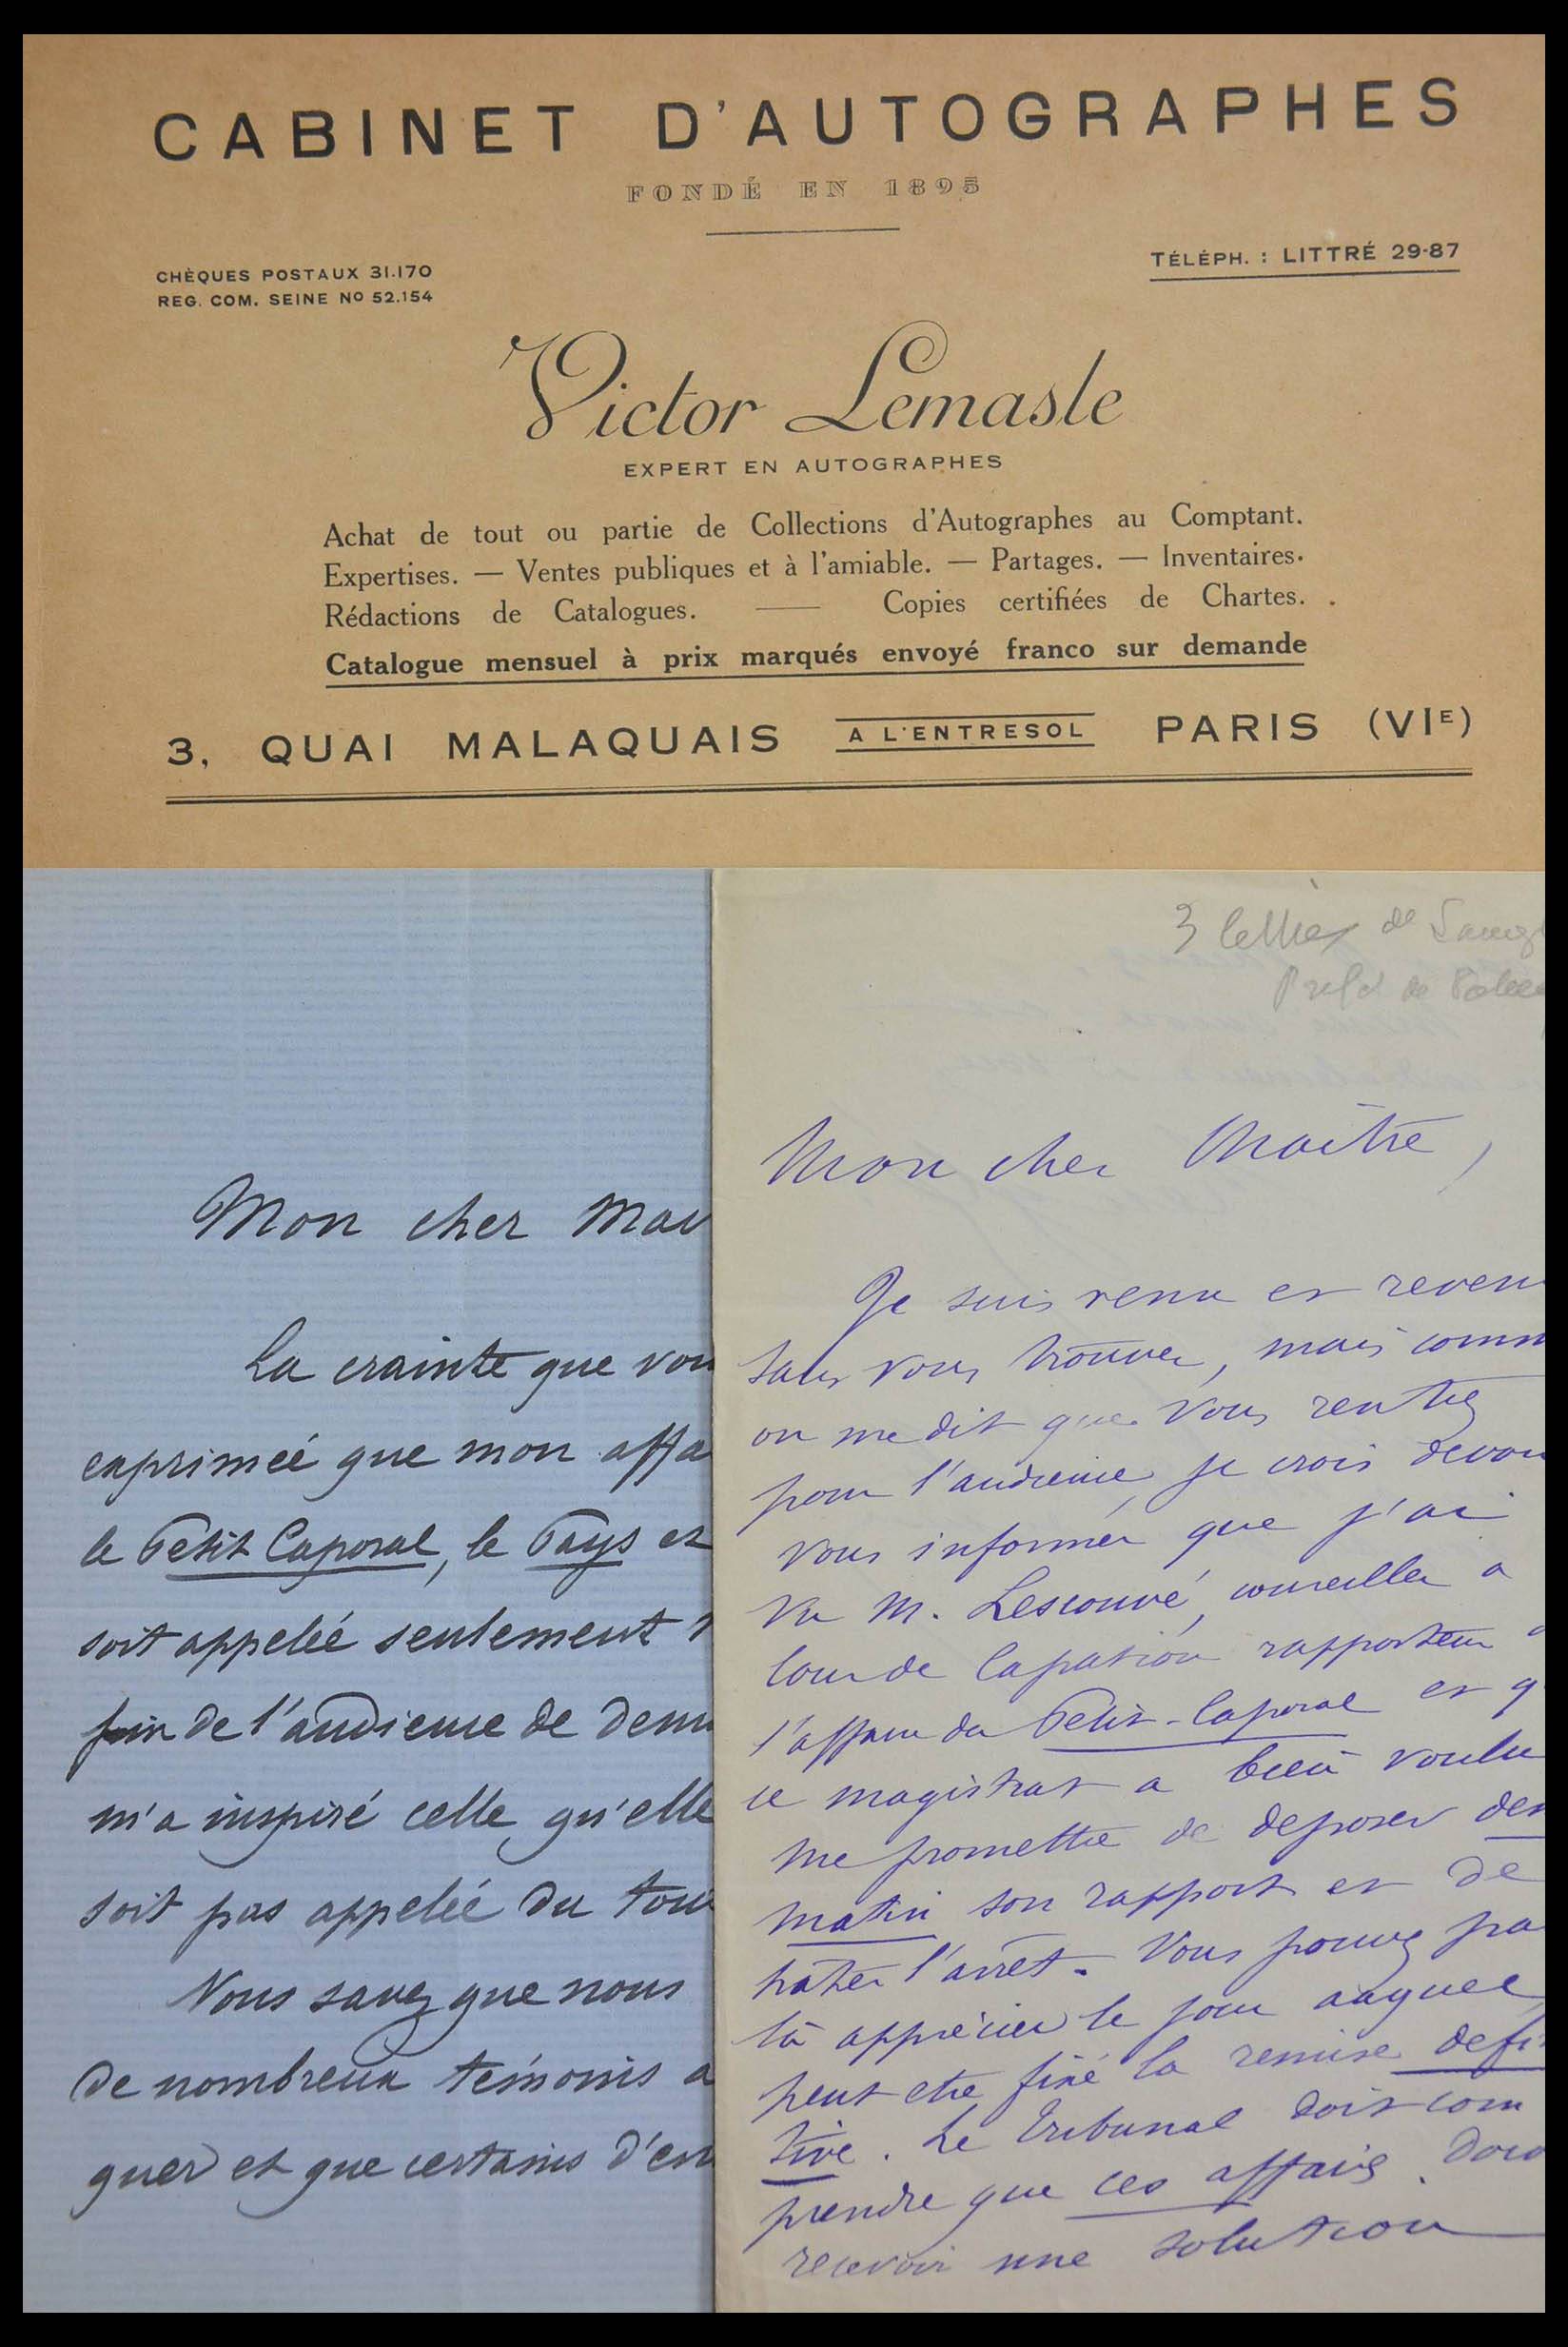 CABINET D'AUTOGRAPHES
FONDÉ EN 1895
CHÈQUES POSTAUX 31.170
REG. COM. SEINE Nº 52.154
TÉLÉPH. : LITTRÉ 29-87
Victor Lemasle
EXPERT EN AUTOGRAPHES
Achat de tout ou partie de Collections d'Autographes au Comptant.
Expertises. — Ventes publiques et à l'amiable. — Partages. — Inventaires.
Rédactions de Catalogues. — Copies certifiées de Chartes.
Catalogue mensuel à prix marqués envoyé franco sur demande
3, QUAI MALAQUAIS A L'ENTRESOL PARIS (VIE)
Mon cher Mai
La crainte que vou
exprimeé que mon affa
le Petit Caporal, le Pays et
soit appeleé seulement
fin de l'audience de dem
m'a inspiré celle qu'elle
soit pas appeleé du tou
Vous savez que nous
de nombreux temoins a
quer et que certains d'en
3 lettres de
Prefet de Police
Mon cher Maitre,
Je suis venu et reven
sans vous trouver, mais comm
on me dit que vous rentrez
pour l'audience je crois devoi
vous informer que j'ai
vu M. Lescouvé, conseiller a
Cour de Cassation rapporteur d
l'affaire du Petit-Caporal et q
ce magistrat a bien voulu
me promettre de deposer dem
matin son rapport et de
hater l'arrêt. Vous pouvez pa
là apprecier le jour auquel
peut etre fixé la remise defi
tive. Le Tribunal doit com
prendre que ces affaires doiv
recevoir une solution